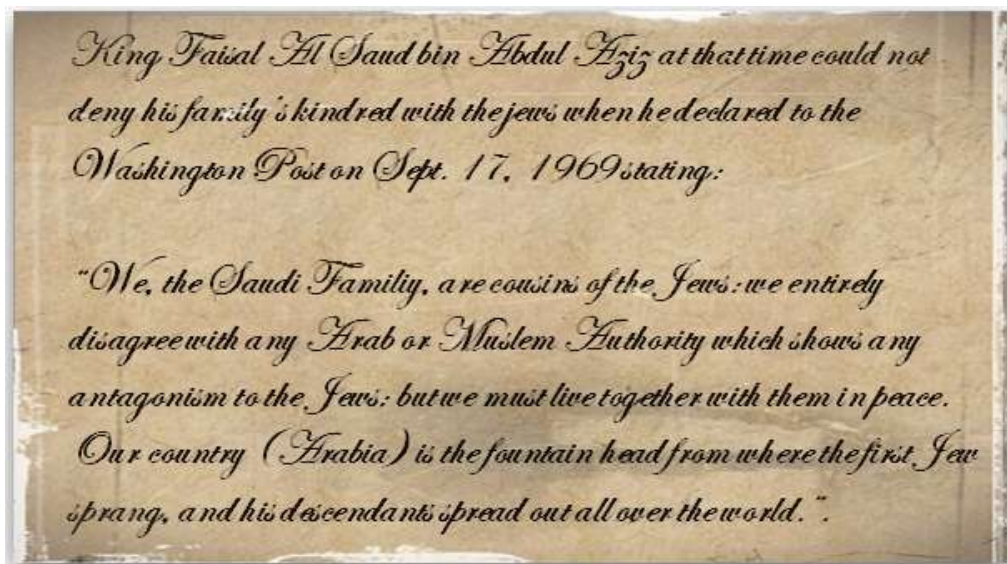 King Faisal Al Saud bin Abdul Aziz at that time could not
deny his family's kindred with the jews when he declared to the
Washington Post on Sept. 17, 1969 stating:
"We, the Saudi Familiy, are cousins of the Jews: we entirely
disagree with any Arab or Muslem Authority which shows any
antagonism to the Jews: but we must live together with them in peace.
Our country (Arabia) is the fountain head from where the first Jew
sprang, and his descendants spread out all over the world.".